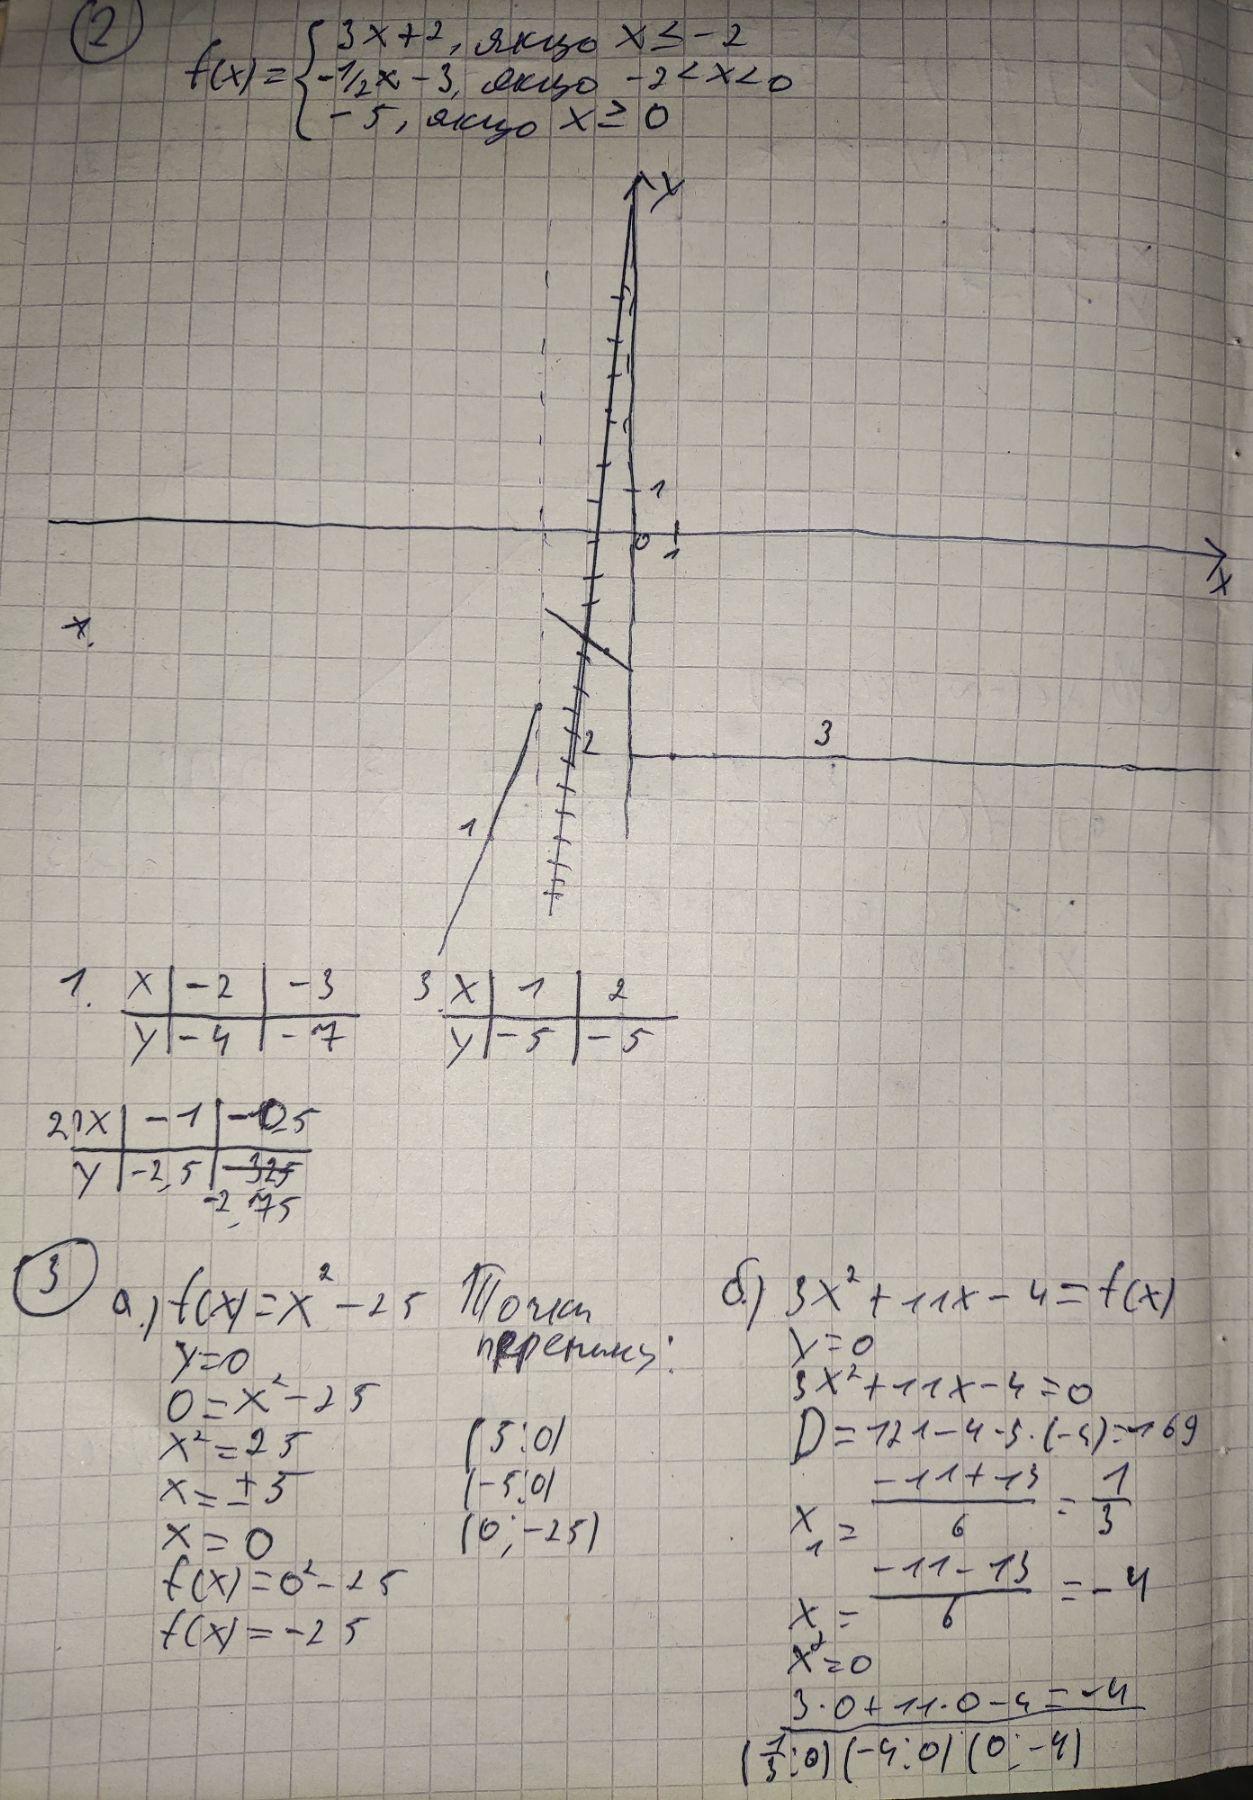 2
f(x) = { 3x+2, якщо x ≤ -2
-1/2x - 3, якщо -2 < x < 0
-5, якщо x ≥ 0
y
1
0
1
x
x.
3
2
1
1. x | -2 | -3
y | -4 | -7
3. x | 1 | 2
y | -5 | -5
2) x | -1 | -0,5
y | -2,5 | -325
-2,75
3
а.) f(x) = x² - 25
y = 0
0 = x² - 25
x² = 25
x = ±5
x = 0
f(x) = 0² - 25
f(x) = -25
Точки
(5;0)
(-5;0)
(0;-25)
б.) 3x² + 11x - 4 = f(x)
y = 0
3x² + 11x - 4 = 0
D = 121 - 4·3·(-4) = 169
x₁ = (-11+13)/6 = 1/3
x₂ = (-11-13)/6 = -4
x = 0
3·0 + 11·0 - 4 = -4
(1/3;0) (-4;0) (0;-4)